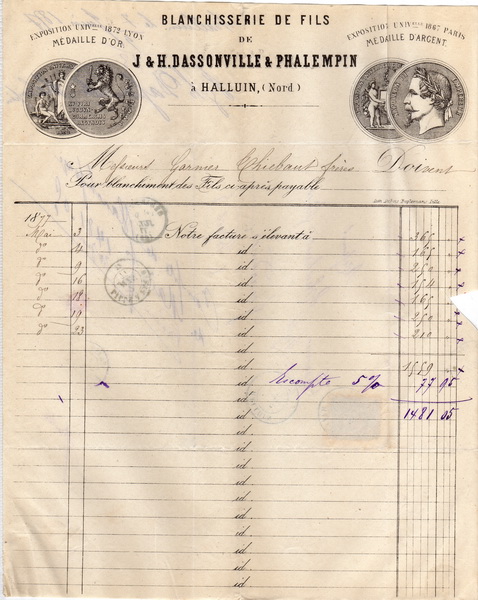 BLANCHISSERIE DE FILS
DE
J & H. DASSONVILLE & PHALEMPIN
à HALLUIN, (Nord)
EXPOSITION UNIVselle 1872 LYON
MÉDAILLE D'OR
EXPOSITION UNIVselle 1867 PARIS
MÉDAILLE D'ARGENT
Messieurs Garnier Thiebaut frères Doivent
Pour blanchiment des Fils, ci après payable
1877
Mai 3 Notre facture s'élevant à 365
do 4 id. 165
do 9 id. 250
do 16 id. 154
do 18 id. 165
do 19 id. 250
do 23 id. 210
id.
id. 1559
id. Escompte 5% 77 95
id.
id. 1481 05
id.
id.
id.
id.
id.
id.
id.
id.
id.
id.